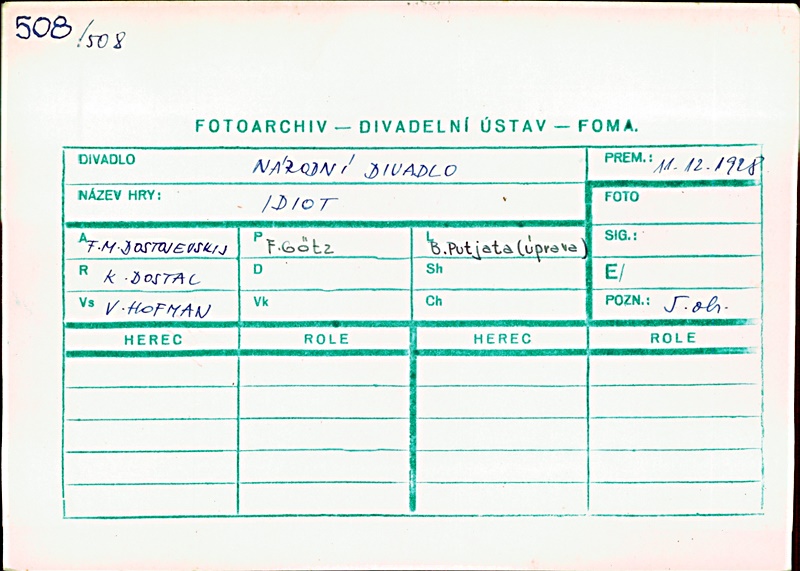 508 /508
FOTOARCHIV — DIVADELNÍ ÚSTAV — FOMA.
DIVADLO NÁRODNÍ DIVADLO PREM.: 11.12.1928
NÁZEV HRY: IDIOT FOTO
A F.M.DOSTOJEVSKIJ P F.Götz L B.Putjata (úprava) SIG.:
R K.DOSTAL D Sh E/
Vs V.HOFMAN Vk Ch POZN.: 5.ob.
HEREC ROLE HEREC ROLE